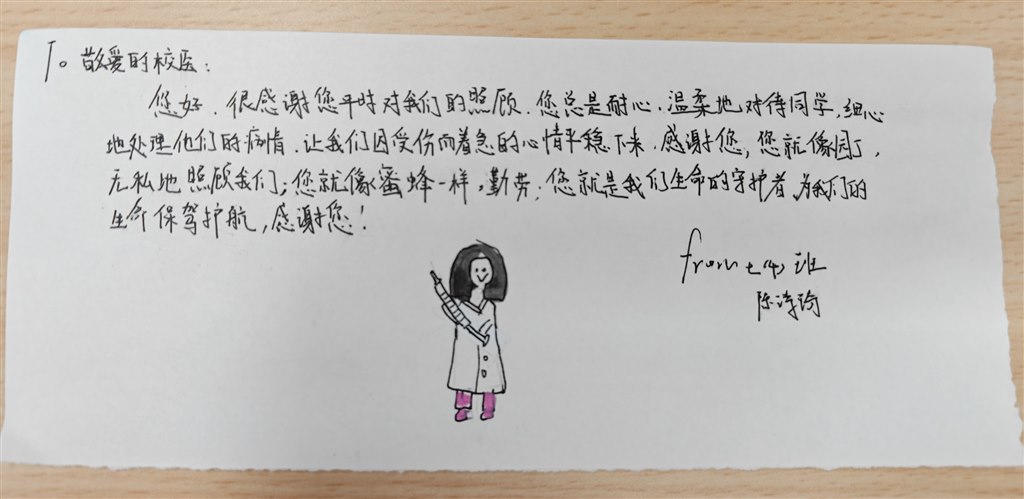 To 敬爱的校医：
您好，很感谢您平时对我们的照顾，您总是耐心、温柔地对待同学，细心
地处理他们的病情，让我们因受伤而着急的心情平稳下来，感谢您，您就像园丁，
无私地照顾我们；您就像蜜蜂一样，勤劳；您就是我们生命的守护者，为我们的
生命保驾护航，感谢您！
from 七(4)班
陈诗瑜